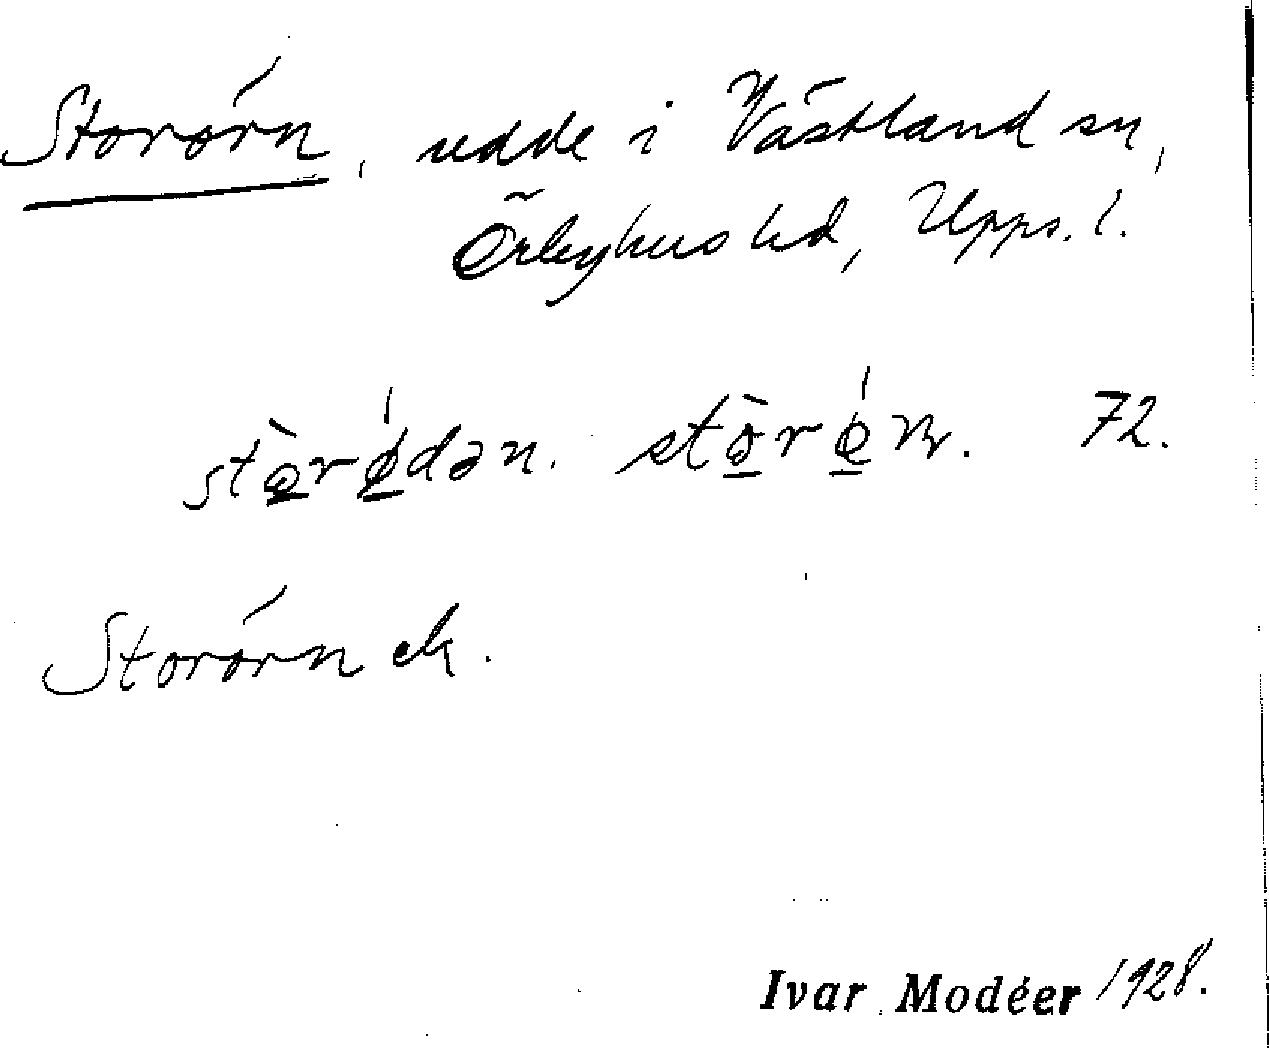 Storörn, udde i Västland sn,
Örbyhus hd, Upps. l.
stòrǿdən. stòrǿn. 72.
Storörn ek.
Ivar Modéer 1928.